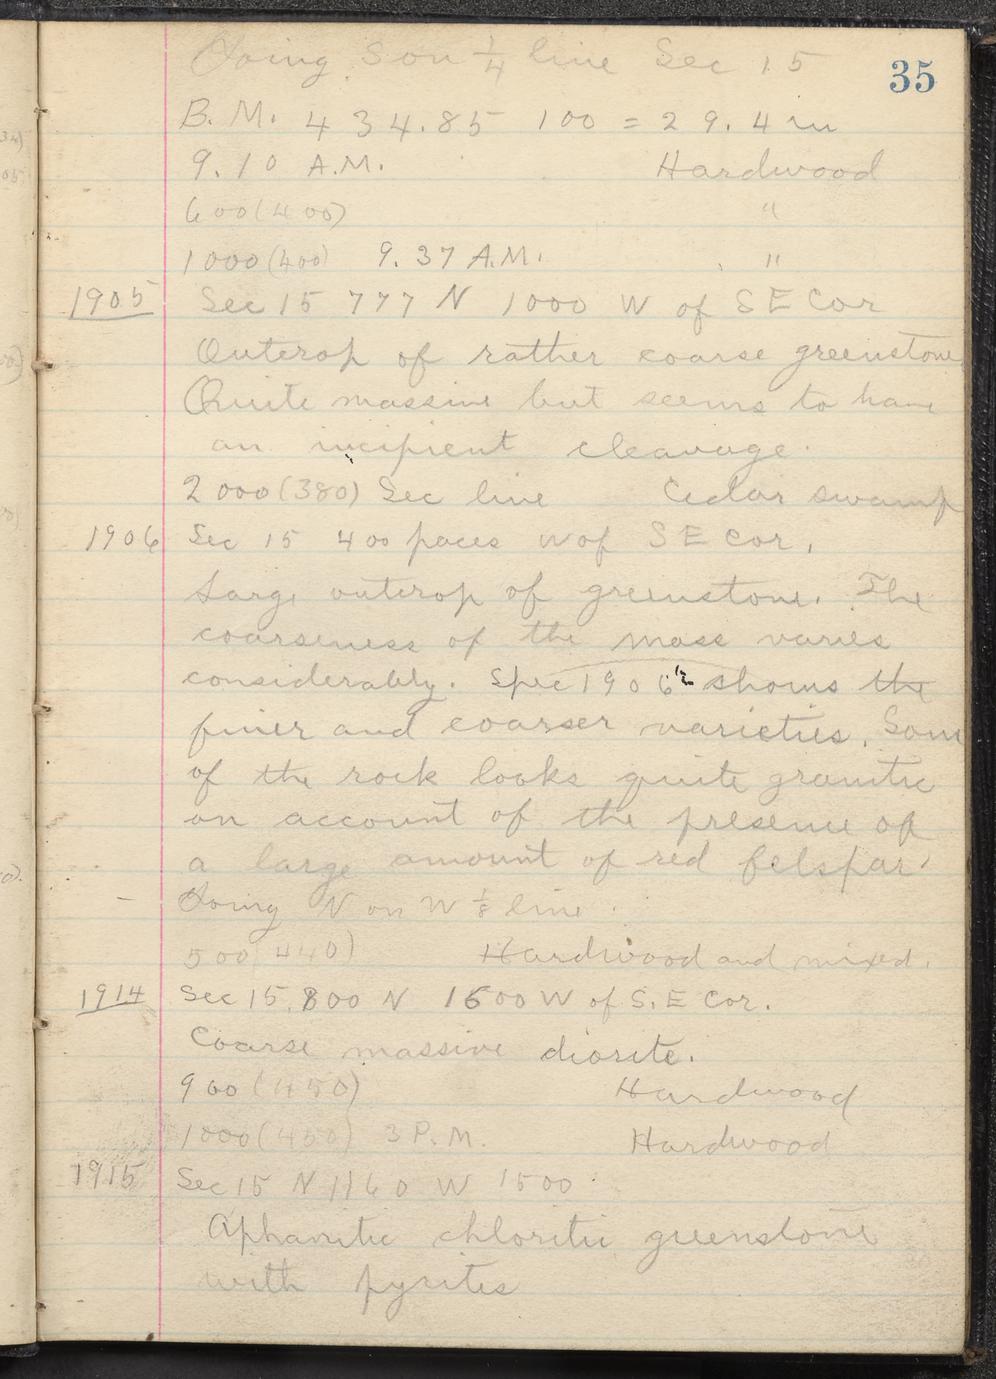 35
Going S on 1/4 line Sec 15
B. M. 434.85 100 = 29.4 m
9.10 A.M. Hardwood
600 (400) "
1000 (400) 9.37 A.M. "
1905 Sec 15 777 N 1000 W of S E Cor
Outcrop of rather coarse greenstone
Quite massive but seems to have
an incipient cleavage.
2000 (380) Sec line Cedar swamp
1906 Sec 15 400 paces W of S E Cor.
Large outcrop of greenstone. The
coarseness of the mass varies
considerably. Spec 1906 shows the
finer and coarser varieties. Some
of the rock looks quite granitic
on account of the presence of
a large amount of red felspar.
Going N on W 1/8 line.
500 (440) Hardwood and mixed.
1914 Sec 15, 800 N 1500 W of S. E Cor.
Coarse massive diorite.
900 (450) Hardwood
1000 (450) 3 P.M. Hardwood
1915 Sec 15 N 1160 W 1500
Aphanitic chloritic greenstone
with pyrites